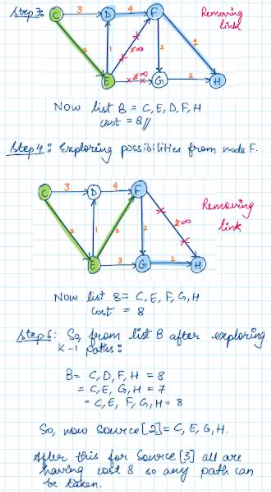 Step 3:
Removing
link
C 3 D 4 F
2 1 2 ∞ 2 2
E ∞ G 2 H
Now list B = C, E, D, F, H
cost = 8//
Step 4: Exploring possibilities from node F.
C 3 D 4 F
Removing
link
2 1 2 2 ∞
E 3 G 2 H
Now list B = C, E, F, G, H
cost = 8
Step 5: So, from list B after exploring
K-1 paths:
B = C, D, F, H = 8
= C, E, G, H = 7
= C, E, F, G, H = 8
So, now Source [2] = C, E, G, H.
After this for Source [3] all are
having cost 8 so any path can
be taken.